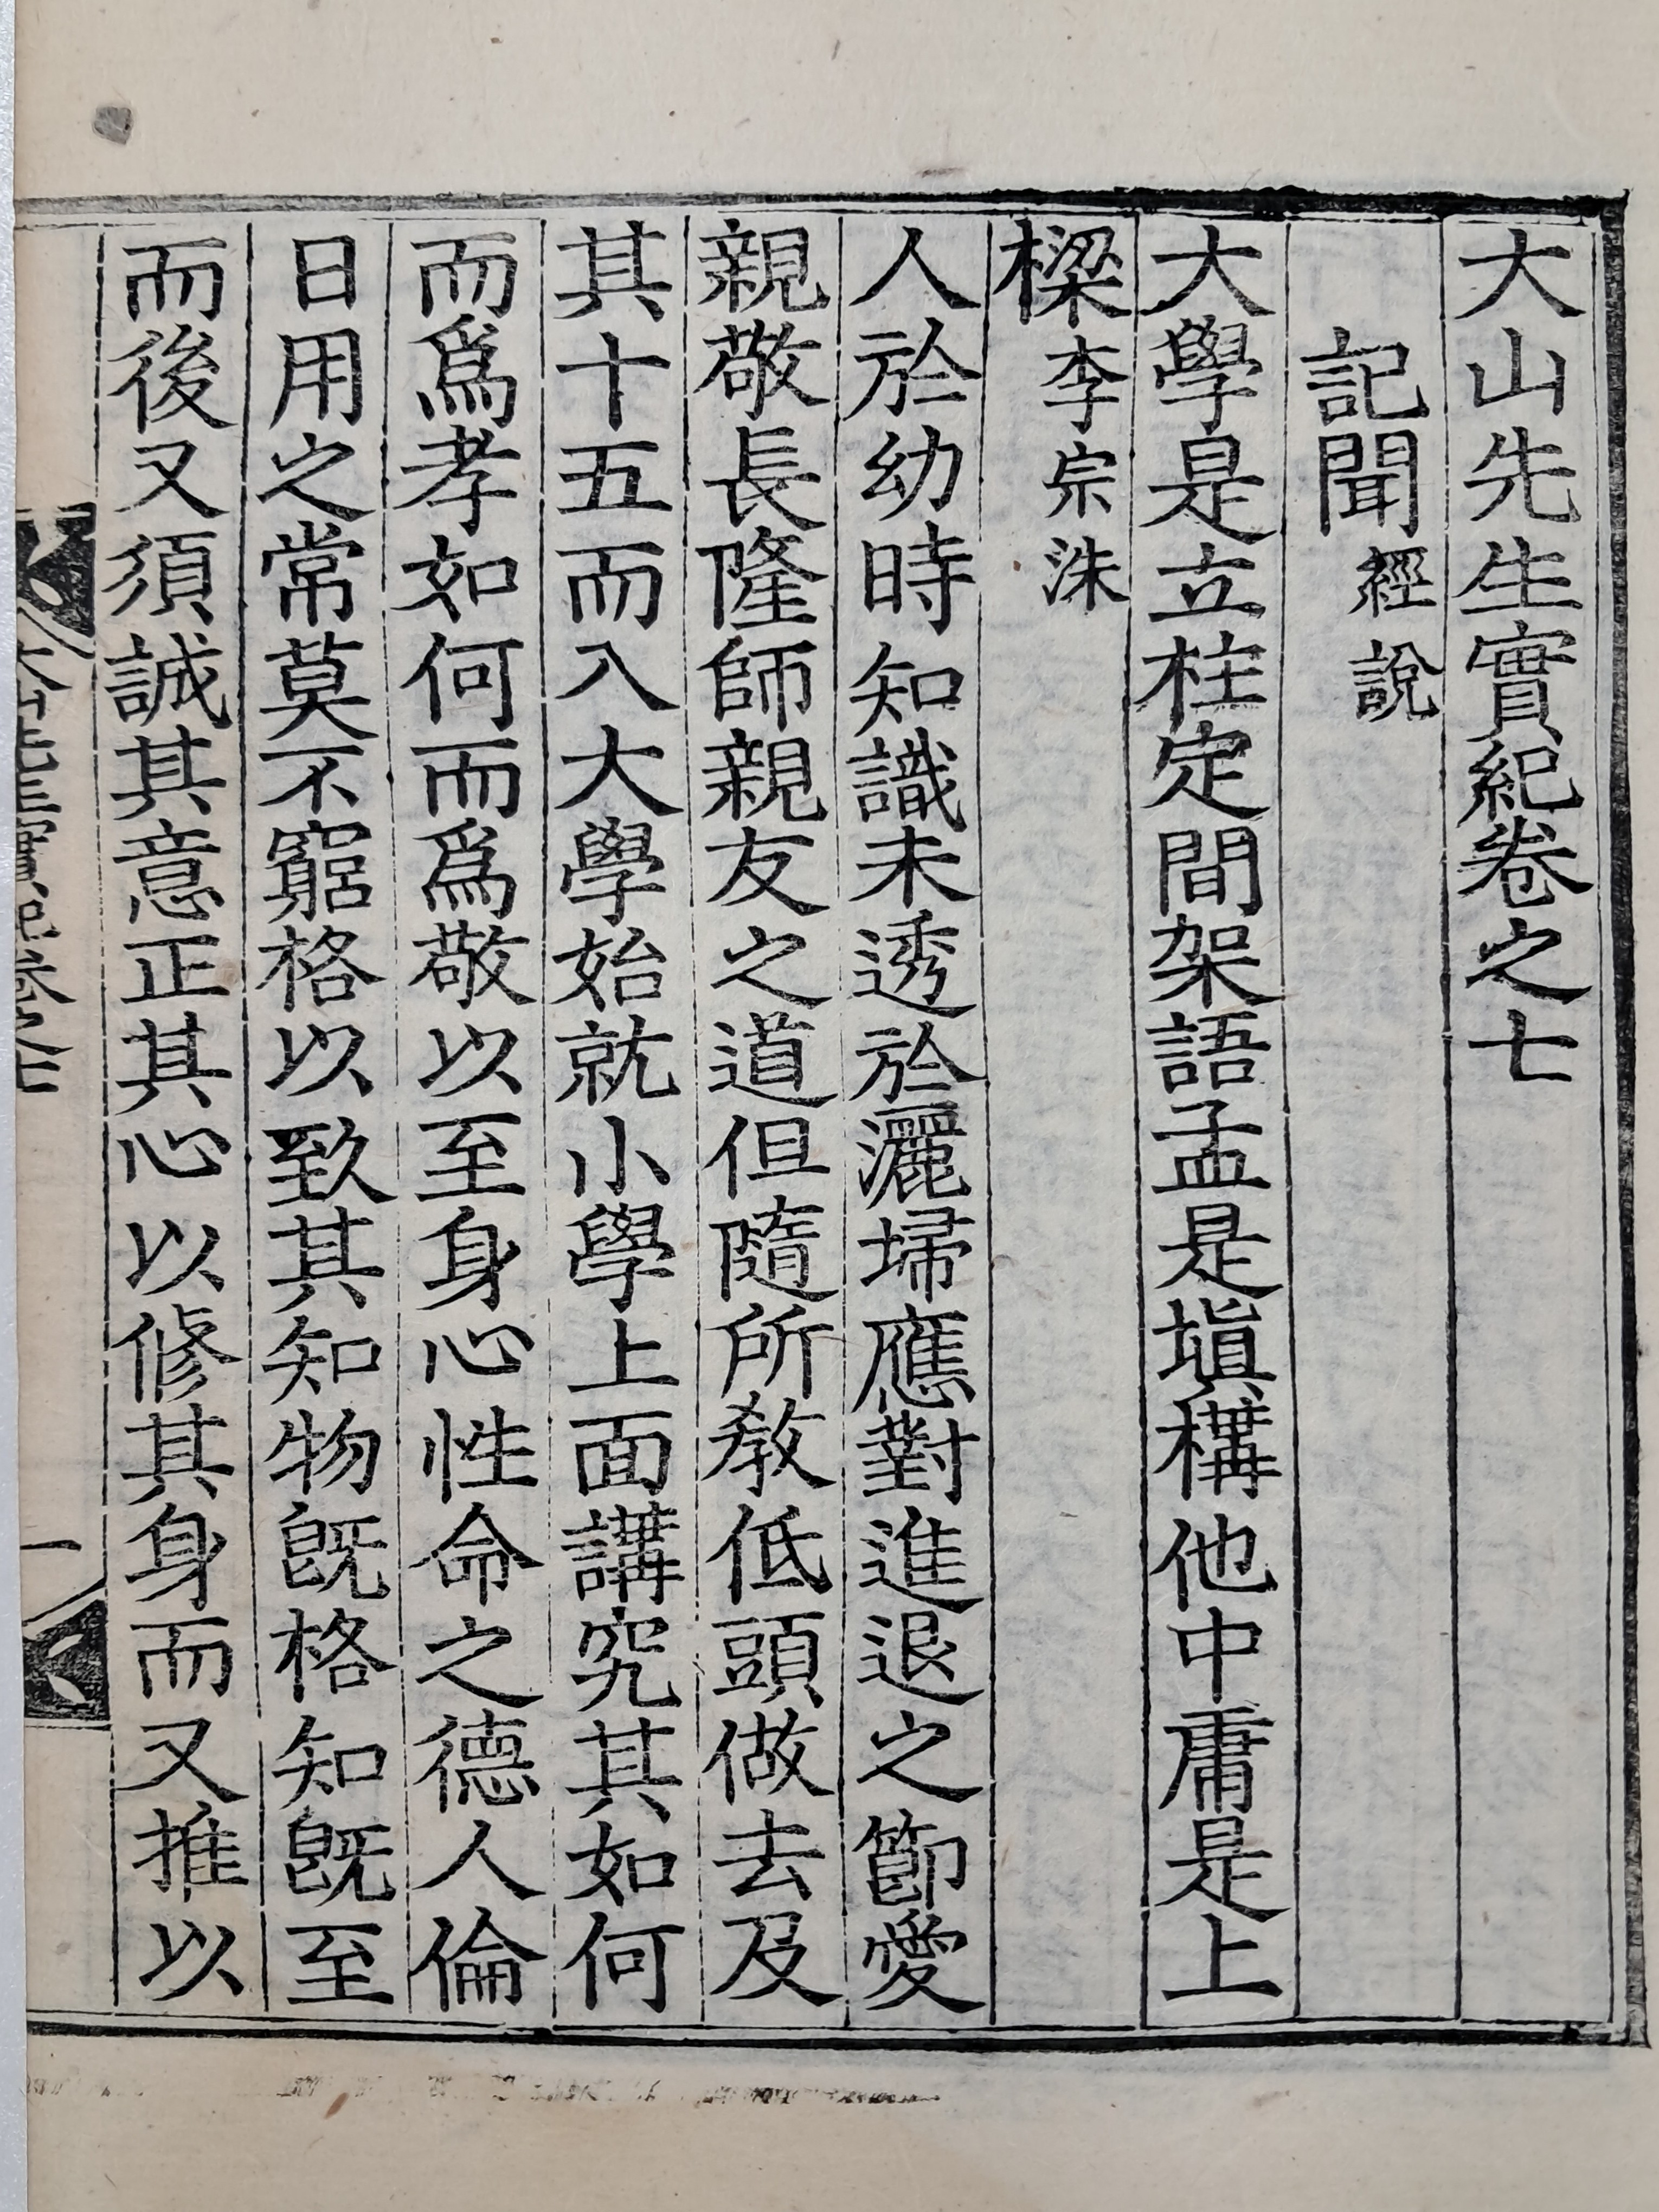 大山先生實紀卷之七
記聞經說
大學是立柱定間架語孟是塡構他中庸是上
樑李宗洙
人於幼時知識未透於灑掃應對進退之節愛
親敬長隆師親友之道但隨所敎低頭做去及
其十五而入大學始就小學上面講究其如何
而爲孝如何而爲敬以至身心性命之德人倫
日用之常莫不窮格以致其知物旣格知旣至
而後又須誠其意正其心以修其身而又推以